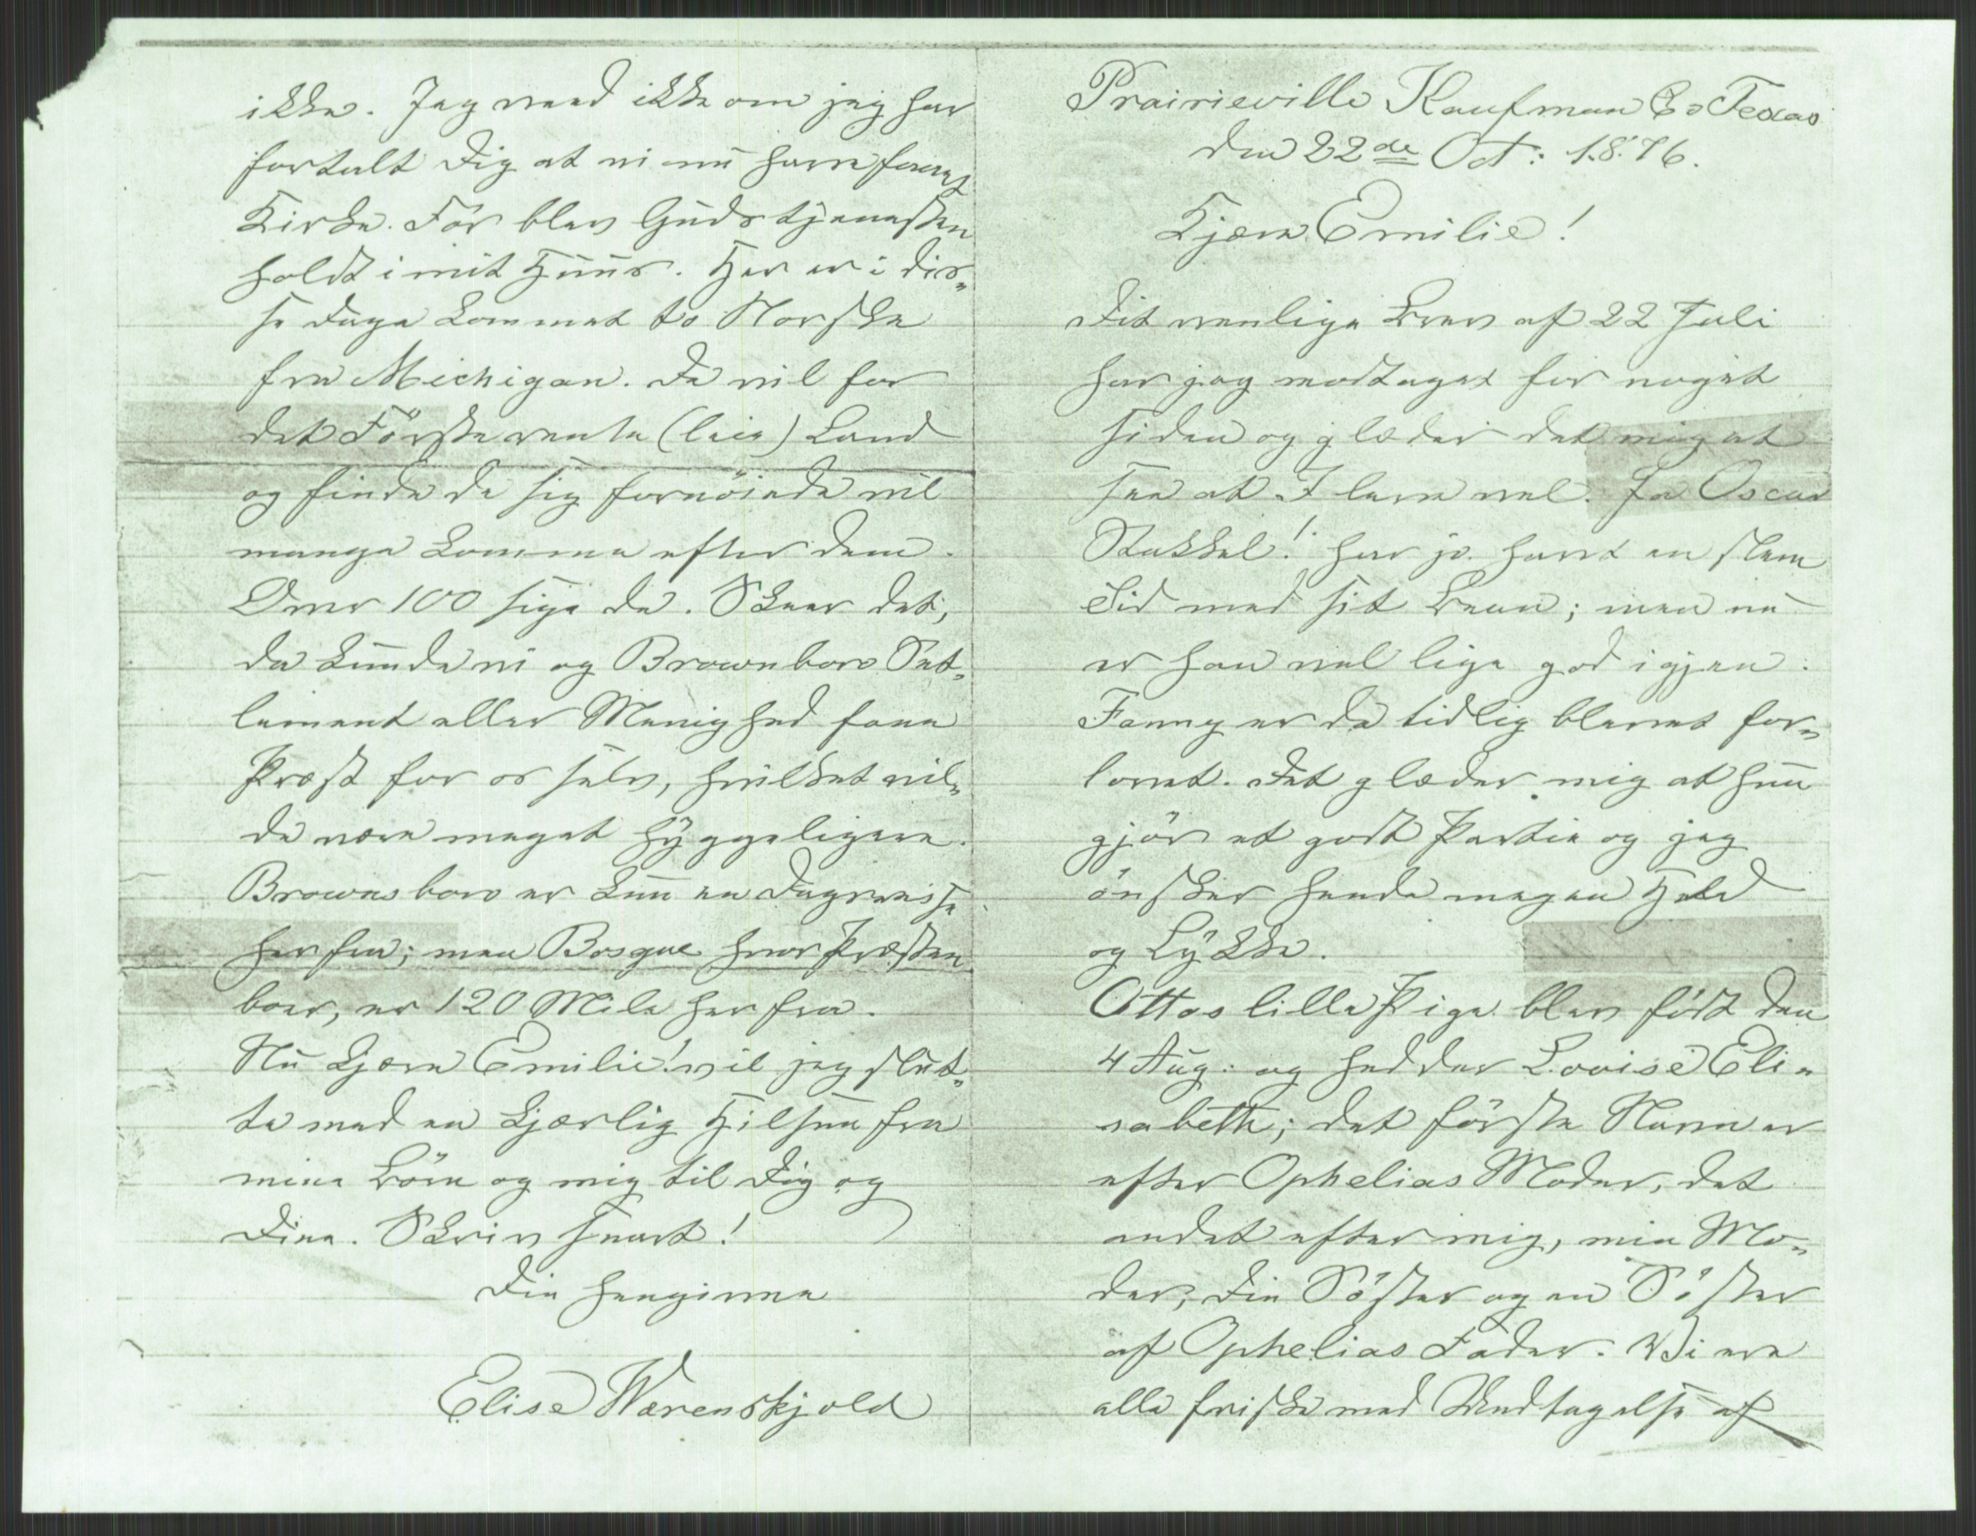 ikke. Jeg veed ikke om jeg har
fortalt Dig at vi nu have faaet
Kirke. Før blev Gudstjenesten
holdt i mit Huus. Her er i dis„
se Dage kommet to Norske
fra Michigan. De vil for
det Første rente (leie) Land
og finde de sig fornöiede vil
mange komme efter dem.
Over 100 sige de. Skeer det,
da kunde vi og Brownboro Set„
lement eller Menighed faae
Præst for os selv, hvilket vil„
de være meget hyggeligere.
Brownsboro er kun en Dagreise
herfra; men Bosque hvor Præsten
boer, er 120 Mile herfra.
Nu kjære Emilie! vil jeg slut„
te med en kjærlig Hilsen fra
mine Börn og mig til Dig og
Dine. Skriv snart!
Din hengivne
Elise Wærenskjold
Prairieville Kaufman Co Texas
den 22de Oct: 1876.
Kjære Emilie!
Dit venlige Brev af 22 Juli
har jeg modtaget for noget
siden og glæder det mig at
see at I leve vel. Ja Oscar
Stakkel! har jo havt en slem
Tid med sit Been; men nu
er han vel lige god igjen.
Fanny er da tidlig blevet for„
lovet. Det glæder mig at hun
gjör et godt Partie og jeg
önsker hende megen Held
og Lykke.
Ottos lille Pige blev født den
4 Aug: og hedder Lovise Eli„
sabeth; det förste Navn er
efter Ophelias Moder, det
andet efter mig, min Mo„
der, Din Söster og en Söster
af Ophelias Fader. Vi ere
alle friske med Undtagelse af